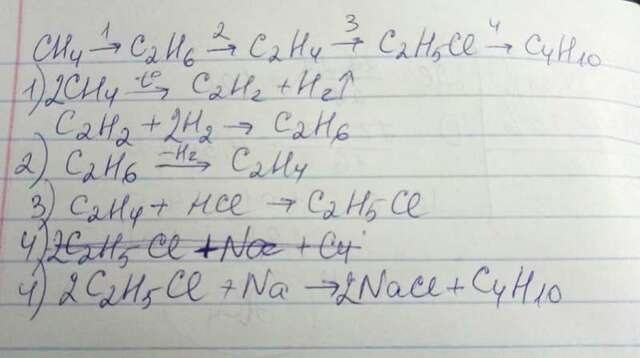 CH4 1→ C2H6 2→ C2H4 3→ C2H5Cl 4→ C4H10
1) 2CH4 t°→ C2H2 + H2↑
C2H2 + 2H2 → C2H6
2) C2H6 -H2→ C2H4
3) C2H4 + HCl → C2H5Cl
4) 2C2H5Cl + Na + C4
4) 2C2H5Cl + Na → 2NaCl + C4H10